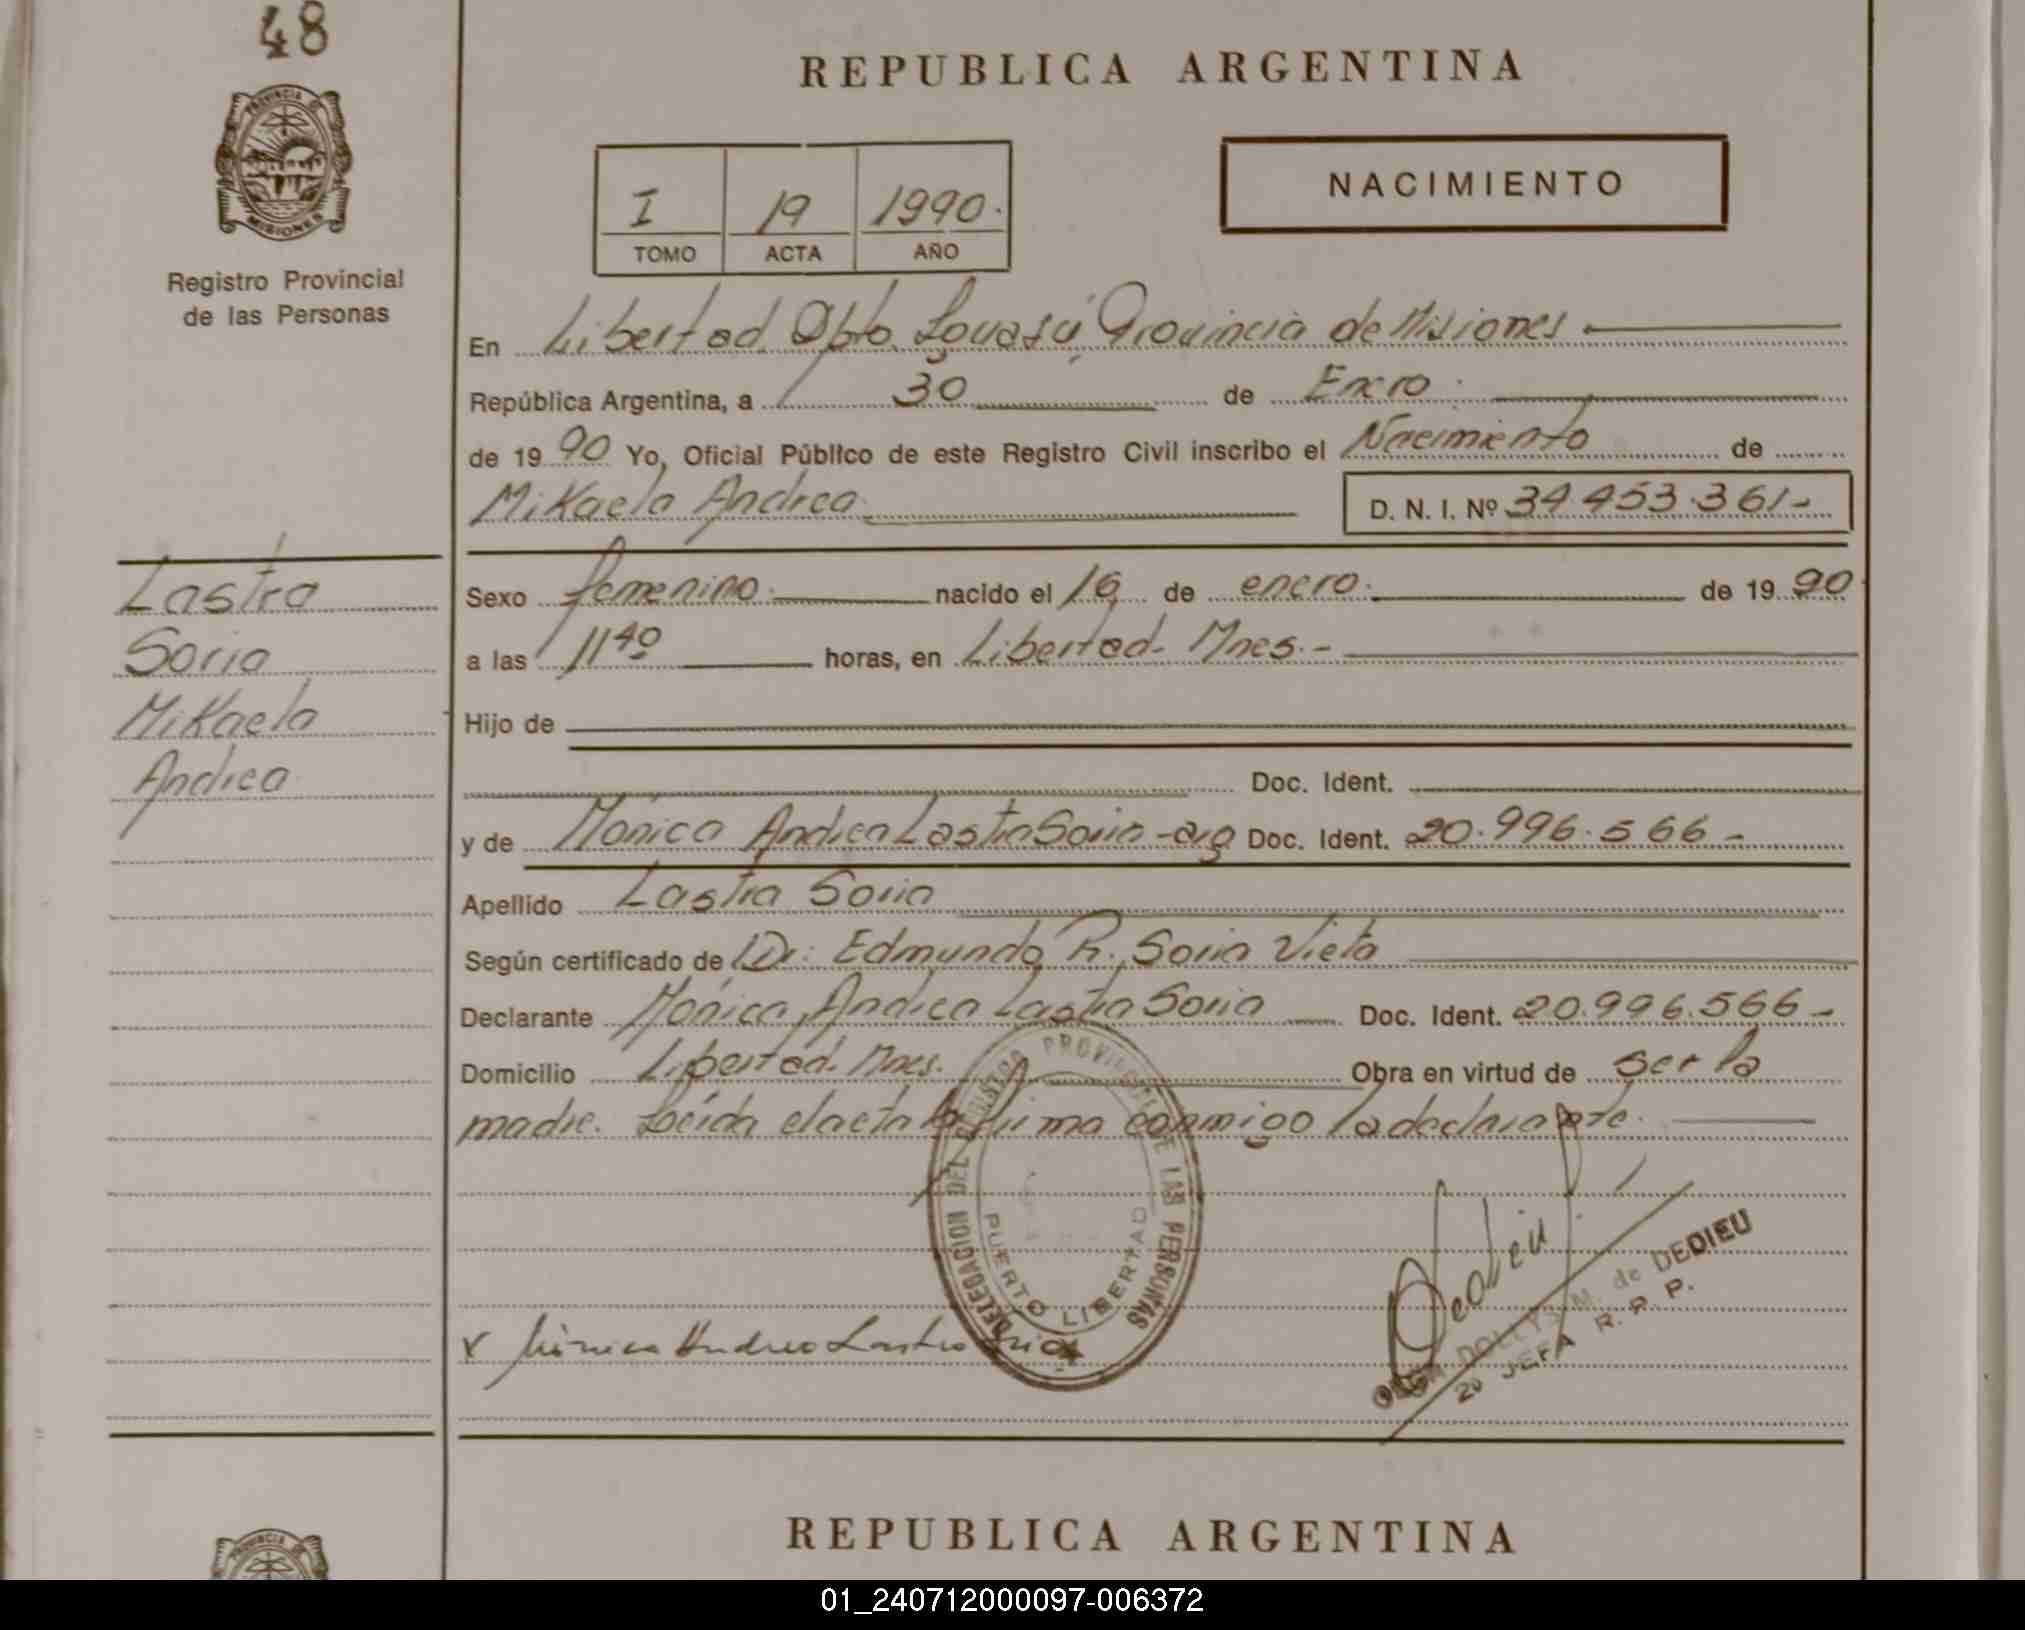 48
REPUBLICA ARGENTINA
PROVINCIA DE
MISIONES
Registro Provincial
de las Personas
I 19 1990.
TOMO ACTA AÑO
NACIMIENTO
En Libertad Dpto. Iguasú, Provincia de Misiones
República Argentina, a 30 de Enero
de 1990 Yo, Oficial Público de este Registro Civil inscribo el Nacimiento de
Mikaela Andrea D. N. I. Nº 34.453.361-
Lastra
Soria
Mikaela
Andrea
Sexo femenino. nacido el 16 de enero. de 1990
a las 11 40 horas, en Libertad- Mnes.-
Hijo de
Doc. Ident.
y de Mónica Andrea Lastra Soria -arg Doc. Ident. 20.996.566-
Apellido Lastra Soria
Según certificado de Dr. Edmundo R. Soria Vieta
Declarante Mónica Andrea Lastra Soria Doc. Ident. 20.996.566-
Domicilio Libertad- Mnes. Obra en virtud de ser la
madre. Leída el acta la firma conmigo la declarante.
DELEGACION DEL REGISTRO PROVINCIAL DE LAS PERSONAS
PUERTO LIBERTAD
x Mónica Andrea Lastra Soria
Dedieu
DOLLYS M. de DEDIEU
2a JEFA R. P. P.
REPUBLICA ARGENTINA
PROVINCIA
01_240712000097-006372